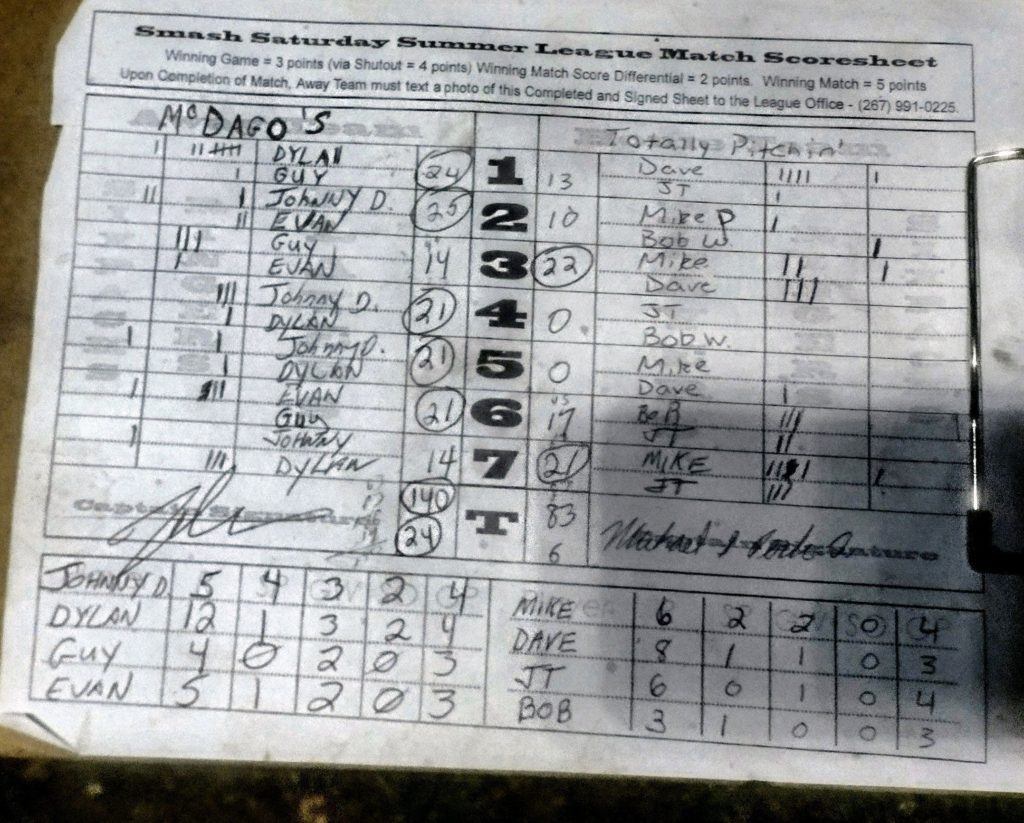 Smash Saturday Summer League Match Scoresheet
Winning Game = 3 points (via Shutout = 4 points) Winning Match Score Differential = 2 points. Winning Match = 5 points
Upon Completion of Match, Away Team must text a photo of this Completed and Signed Sheet to the League Office - (267) 991-0225.
McDAGO'S Totally Pitchin'
DYLAN 24 1 13 Dave
GUY JT
JOHNNY D. 25 2 10 Mike P
EVAN Bob W.
Guy 14 3 22 Mike
EVAN Dave
Johnny D. 21 4 0 JT
DYLAN Bob W.
Johnny D. 21 5 0 Mike
DYLAN Dave
EVAN 21 6 17 BOB
Guy JT
JOHNNY 14 7 21 MIKE
DYLAN JT
140 T 83
24 6
JOHNNY D. 5 4 3 2 4 MIKE 6 2 2 0 4
DYLAN 12 1 3 2 4 DAVE 8 1 1 0 3
GUY 4 0 2 0 3 JT 6 0 1 0 4
EVAN 5 1 2 0 3 BOB 3 1 0 0 3